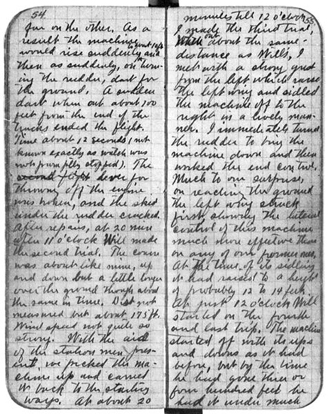 54
far on the other. As a
result the machine would
rise suddenly to about 10 ft.
and then as suddenly, on turn-
ing the rudder, dart for
the ground. A sudden
dart when out about 100
feet from the end of the
tracks ended the flight.
Time about 12 seconds (not
known exactly as watch was
not promptly stopped). The
lever for
throwing off the engine
was broken, and the skid
under the rudder cracked.
After repairs, at 20 min.
after 11 o'clock Will made
the second trial. The course
was about like mine, up
and down but a little longer
over the ground though about
the same in time. Dist. not
measured but about 175 ft.
Wind speed not quite so
strong. With the aid
of the station men pres-
ent, we picked the ma-
chine up and carried
it back to the starting
ways. At about 20
minutes till 12 o'clock
I made the third trial.
When out about the same
distance as Will's, I
met with a strong gust
from the left which raised
the left wing and sidled
the machine off to the
right in a lively man-
ner. I immediately turned
the rudder to bring the
machine down and then
worked the end control.
Much to our surprise,
on reaching the ground
the left wing struck
first, showing the lateral
control of this machine
much more effective than
on any of our former ones.
At the time of its sidling
it had raised to a height
of probably 12 to 14 feet.
At just 12 o'clock Will
started on the fourth
and last trip. The machine
started off with its ups
and downs as it had
before, but by the time
he had gone three or
four hundred feet he
had it under much